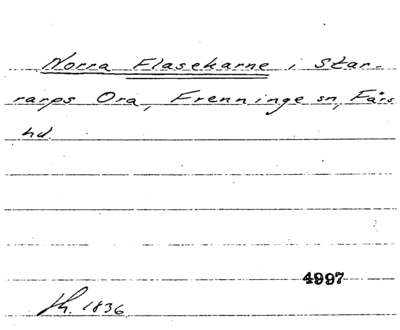 Norra Flasekarne i Star-
rarps Ora, Frenninge sn, Färs
hd.
4997
1836